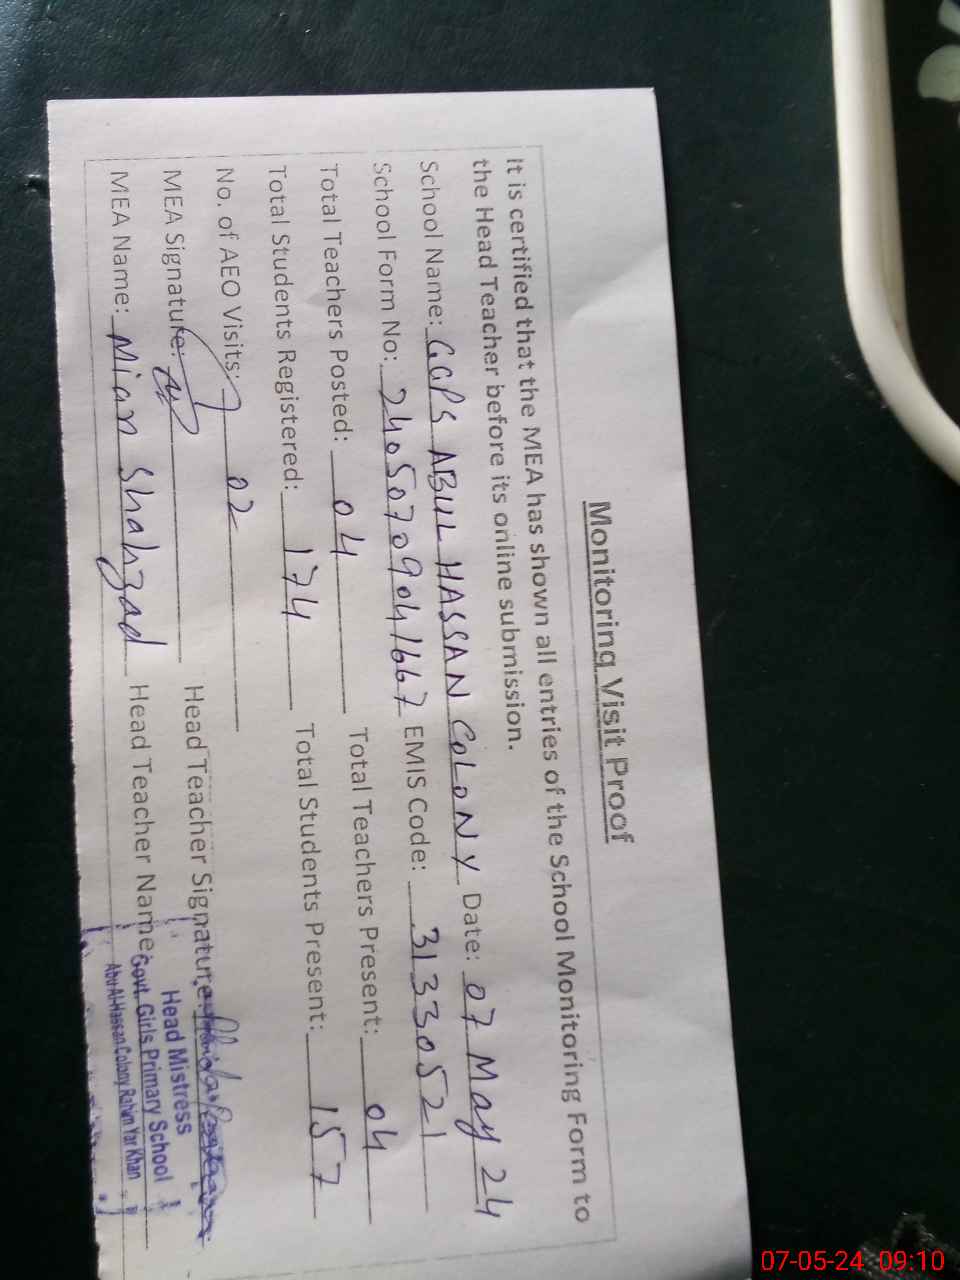 Monitoring Visit Proof
It is certified that the MEA has shown all entries of the School Monitoring Form to
the Head Teacher before its online submission.
School Name: GGPS ABUL HASSAN COLONY Date: 07 May 24
School Form No: 24050709041667 EMIS Code: 31330521
Total Teachers Posted: 04 Total Teachers Present: 04
Total Students Registered: 174 Total Students Present: 157
No. of AEO Visits: 02
MEA Signature: Head Teacher Signature:
MEA Name: Mian Shahzad Head Teacher Name:
Head Mistress
Govt. Girls Primary School
Abu Al-Hassan Colony Rahim Yar Khan
07-05-24 09:10